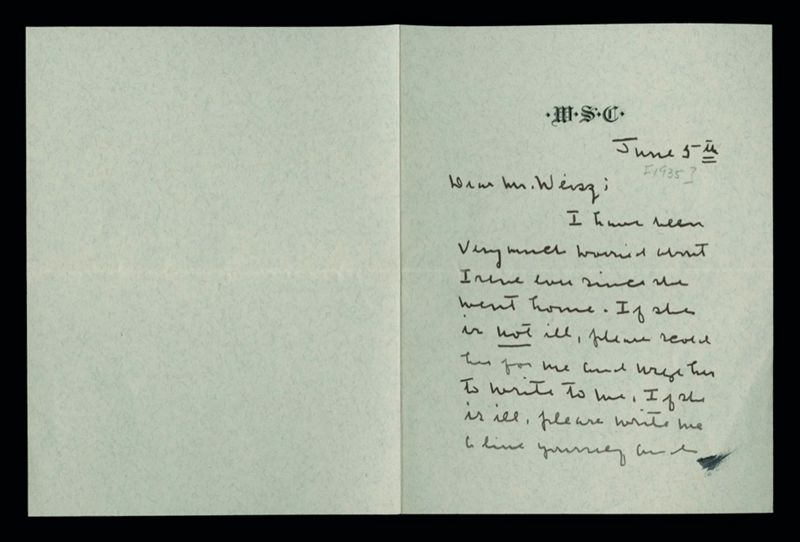 ·W·S·C·
June 5th
[1935?]
Dear Mr. Weisz;
I have been
very much worried about
Irene ever since she
went home. If she
is not ill, please scold
her for me and urge her
to write to me. If she
is ill, please write me
a line yourself and